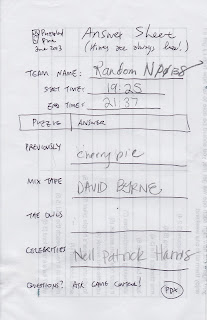 Answer Sheet
June 2013
TEAM NAME: Random NAMES
START TIME: 19:25
END TIME: 21:37
PUZZLE ANSWER
PREVIOUSLY cherry pie
MIX TAPE DAVID BYRNE
THE OWLS
CELEBRITIES Neil Patrick Harris
QUESTIONS? ASK GAME CONTROL!
PDX